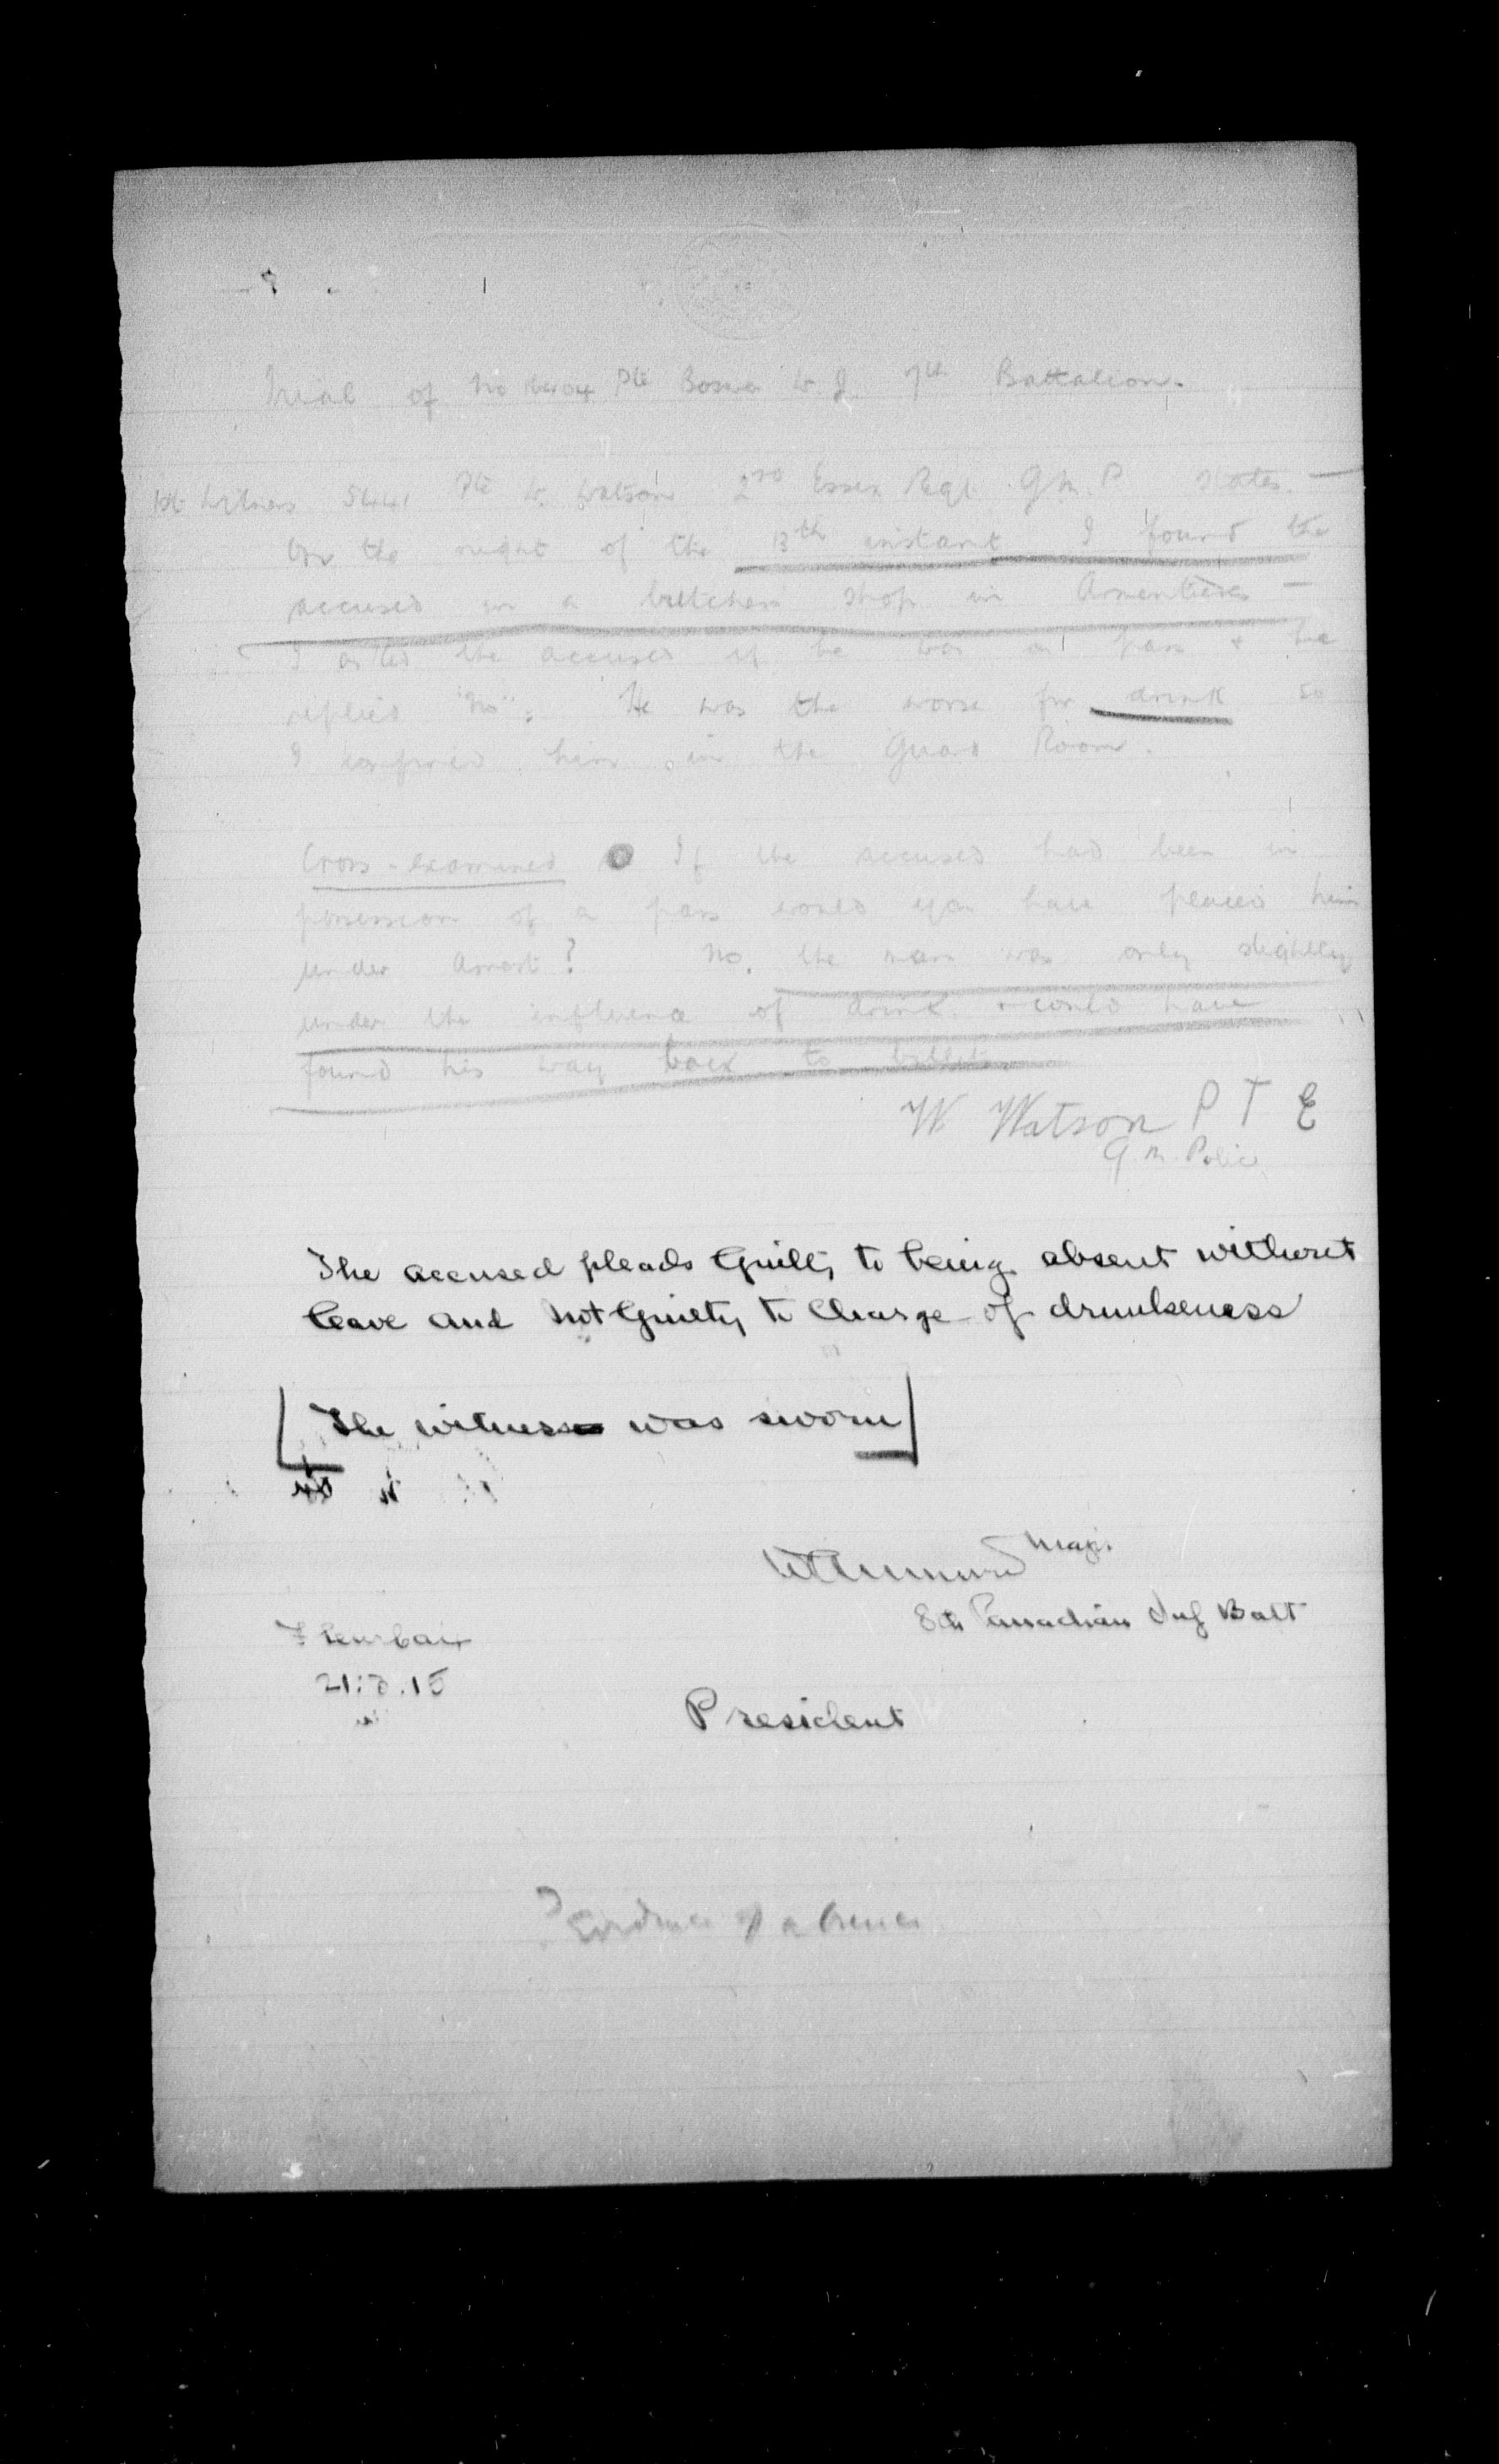 Trial of No Pte W. J. 7th Battalion.
1st Witness 5441 Pte W. Watson 2nd Essex Regt. G.M.P. states. —
On the night of the 13th instant I found the
accused in a butchers shop in Armentieres —
I asked the accused if he was on pass & he
replied "No". He was the worse for drink so
I confined him in the Guard Room.
Cross-examined If the accused had been in
possession of a pass would you have placed him
under arrest? No. the man was only slightly
under the influence of drink & could have
found his way back to billets.
W Watson PTE
G.M. Police
The accused pleads Guilty to being absent without
leave and not Guilty to Charge of drunkeness
[The witness was sworn]
Maj.
8th Canadian Inf Batt
Fleurbaix
21.3.15
President
? Evidence of absence